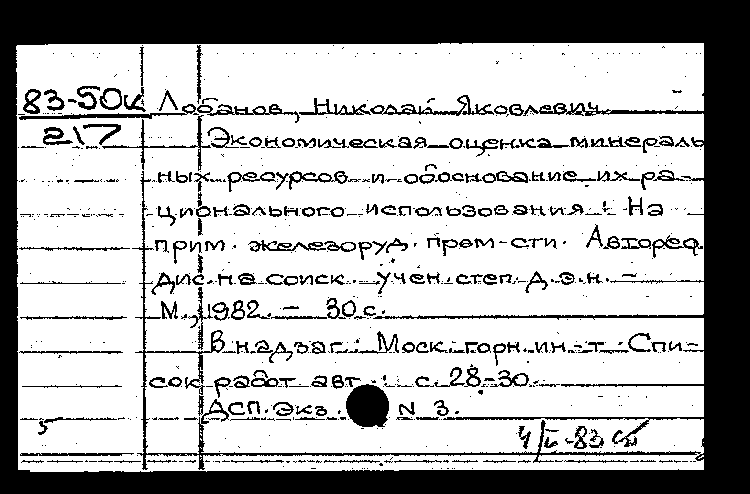 83-50к Лобанов, Николай Яковлевич
217 Экономическая оценка минераль
ных ресурсов и обоснование их ра-
ционального использования: На
прим. железоруд. пром-сти. Автореф.
дис. на соиск. учен. степ. д.э.н. –
М., 1982. – 30 с.
В надзаг.: Моск. горн. ин-т. Спи-
сок работ авт.: с. 28-30.
ДСП. Экз. N 3.
5